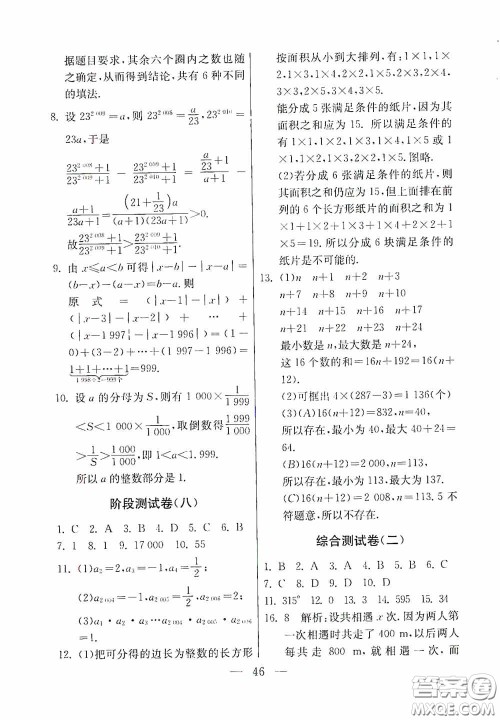 据题目要求,其余六个圈内之数也随
之确定,从而得到结论,共有6种不同
的填法.
8. 设23²⁰⁰⁹=a,则23²⁰⁰⁸=a/23,23²⁰¹⁰=
23a,于是
(23²⁰⁰⁸+1)/(23²⁰⁰⁹+1) − (23²⁰⁰⁹+1)/(23²⁰¹⁰+1) = (a/23+1)/(a+1) −
(a+1)/(23a+1) = (21+1/23)a/((a+1)(23a+1))>0.
故(23²⁰⁰⁸+1)/(23²⁰⁰⁹+1)>(23²⁰⁰⁹+1)/(23²⁰¹⁰+1).
9. 由x≤a<b可得|x−b|−|x−a|=
(b−x)−(a−x)=b−a.则
原式=(|x−1|−|x|)+
(|x−3|−|x−2|)+…+
(|x−1997|−|x−1996|)=(1−
0)+(3−2)+…+(1997−1996)=
1+1+…+1=999.
1998÷2=999个
10. 设a的分母为S,则有1000×1/1999
<S<1000×1/1000,取倒数得1999/1000
>1/S>1000/1000,即1<a<1.999.
所以a的整数部分是1.
阶段测试卷(八)
1. C 2. A 3. B 4. D 5. C 6. B
7. 1 8. 1 9. 17000 10. 55
11. (1)a₂=2,a₃=−1,a₄=1/2;
(2)a₂₀₀₄=−1,a₂₀₀₅=1/2,a₂₀₀₆=2;
(3)a₁·a₂·a₃…a₂₀₀₆·a₂₀₀₇·a₂₀₀₈
=−1.
12. (1)把可分得的边长为整数的长方形
按面积从小到大排列,有:1×1,1×
2,1×3,1×4,2×2,1×5,2×3,2×
4,3×3,2×5,3×4,3×5.
能分成5张满足条件的纸片,因为其
面积之和应为15.所以满足条件的有
1×1,1×2,1×3,1×4,1×5或1×
1,1×2,1×3,2×2,1×5.图略.
(2)若分成6张满足条件的纸片,则
其面积之和仍应为15,但上面排在前
列的6个长方形纸片的面积之和为1
×1+1×2+1×3+1×4+2×2+
1×5=19.所以分成6块满足条件的
纸片是不可能的.
13. (1)n n+1 n+2 n+3
n+7 n+8 n+9 n+10
n+14 n+15 n+16 n+17
n+21 n+22 n+23 n+24
最小数是n,最大数是n+24,
这16个数的和=16n+192=16(n+
12).
(2)可框出4×(287−3)=1136(个)
(3)(A)16(n+12)=832,n=40,
所以存在,最小为40,最大为40+24=
64.
(B)16(n+12)=2000,n=113,
所以存在,最小为113,最大为137.
(C)16(n+12)=2008,n=113.5不
符题意,所以不存在.
综合测试卷(二)
1. B 2. B 3. C 4. A 5. B 6. D
7. C 8. D 9. D 10. A
11. 315° 12. 0 13. 3 14. 595 15. 0
16. 8 解析:设共相遇x次.因为两人第
一次相遇时共走了400 m,以后两人
每共走800 m,就相遇一次,而
— 46 —
答案圈
MXQE.COM